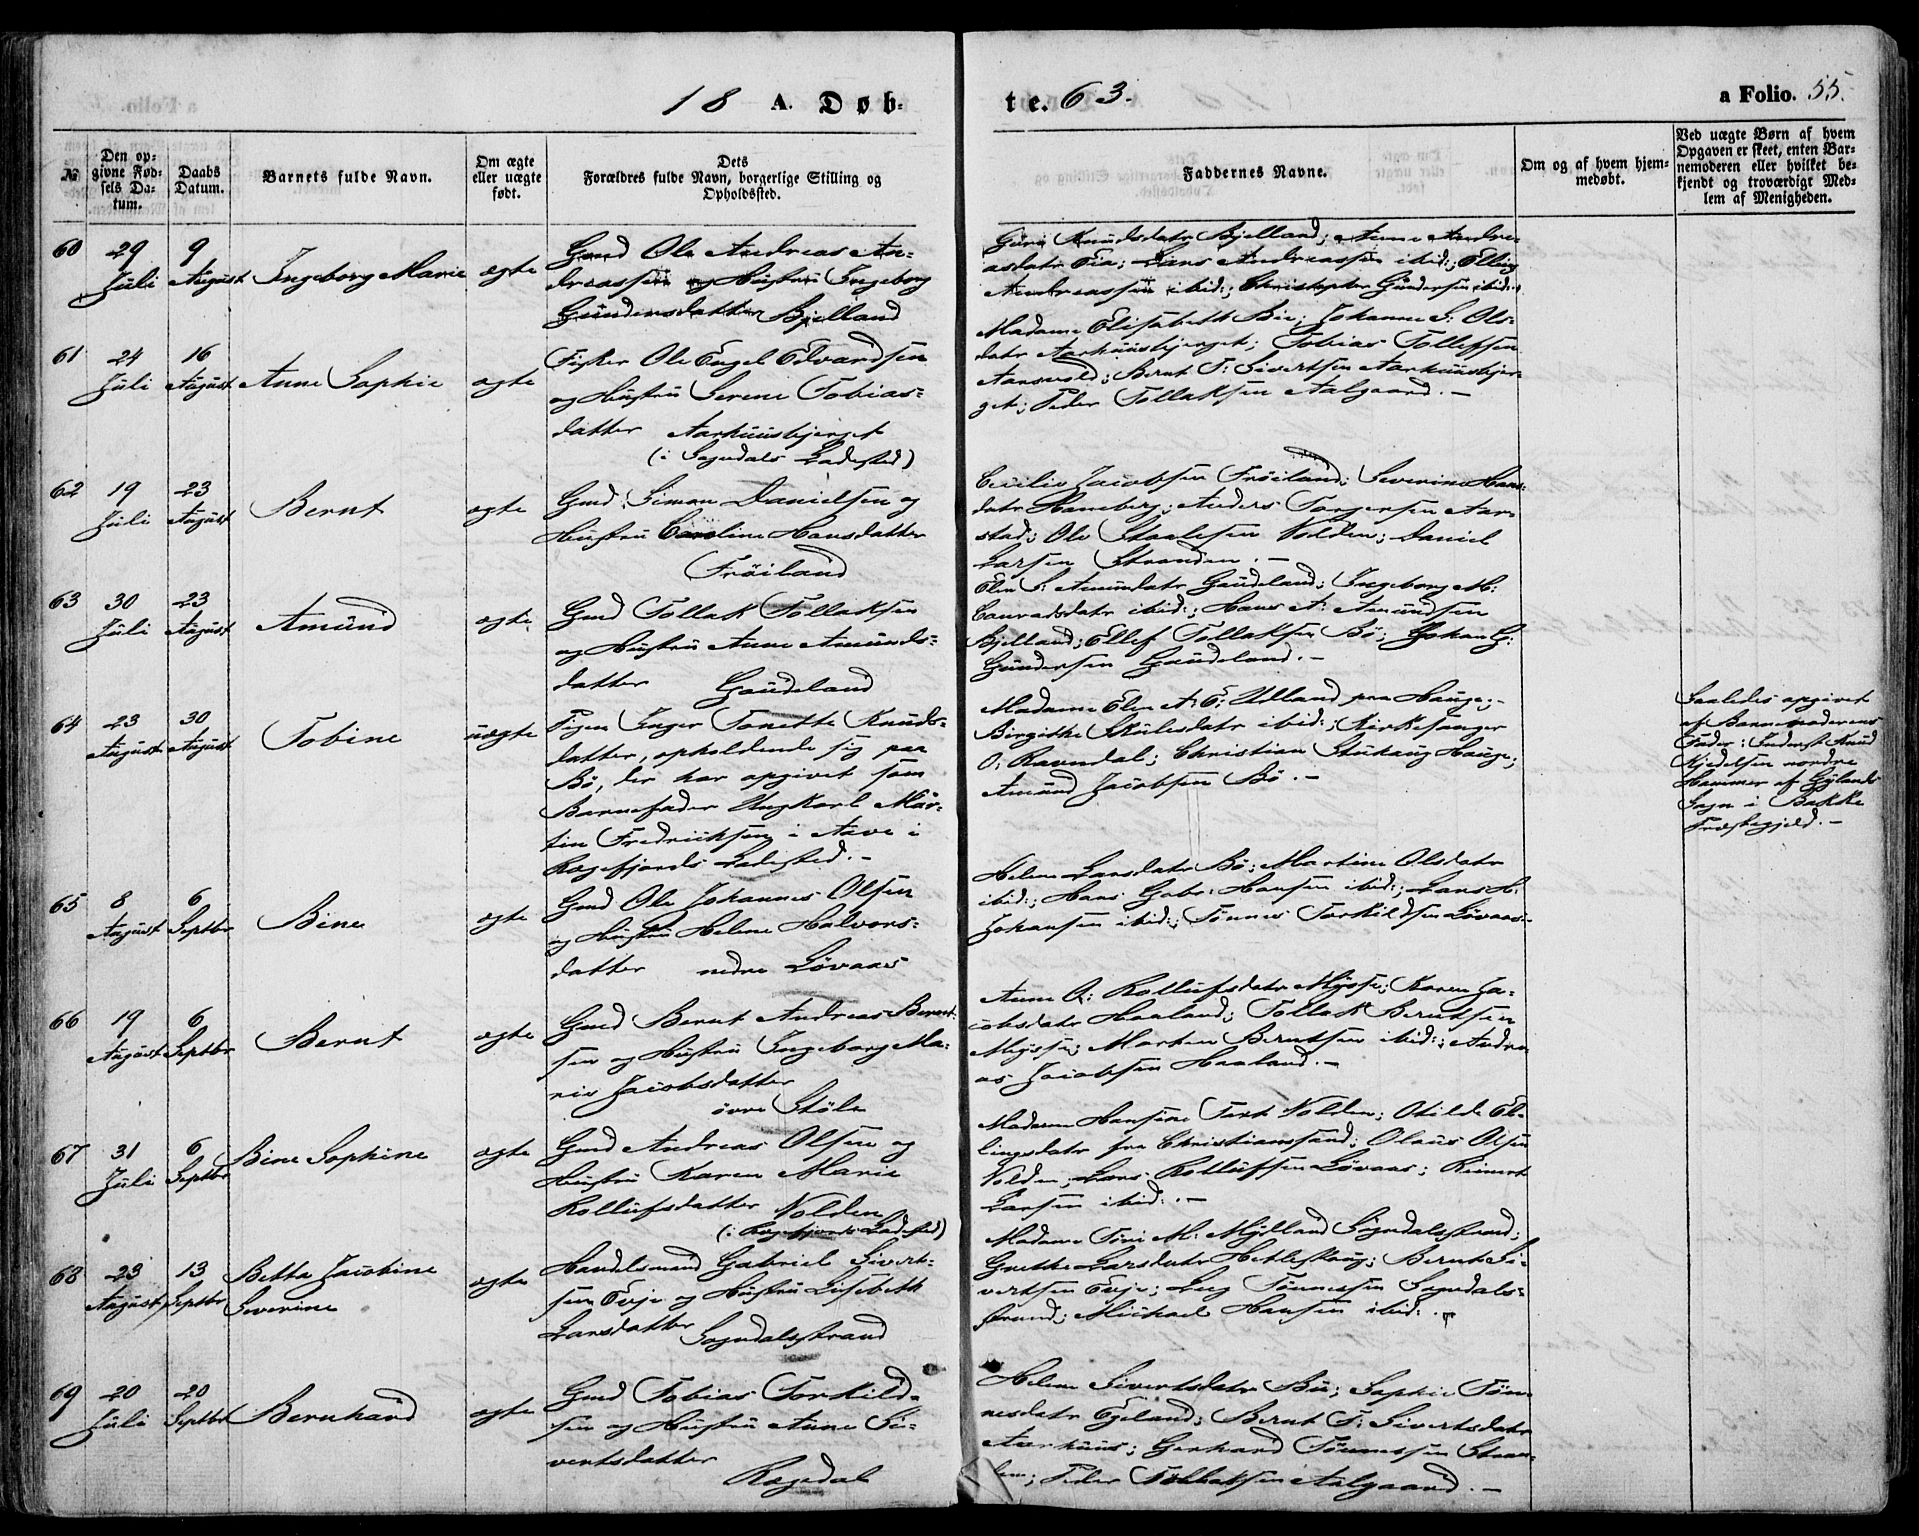 18 A. Døb-
te. 63.
a Folio. 55.
№
Den op-
givne Fød-
sels Da-
tum.
Daabs
Datum.
Barnets fulde Navn.
Om ægte
eller uægte
født.
Dets
Forældres fulde Navn, borgerlige Stilling og
Opholdssted.
Faddernes Navne.
Om og af hvem hjem-
medøbt.
Ved uægte Børn af hvem
Opgaven er skeet, enten Bar-
nemoderen eller hvilket be-
kjendt og troværdigt Med-
lem af Menigheden.
60
29
Juli
9
August
Ingeborg Marie
ægte
Gmd Ole Andreas An-
dreassen og Hustru Ingeborg
Gundersdatter Bjelland
Guri Knudsdatr Bjelland; Anne Andre-
asdatr Eia; Lars Andreassen ibid:; Elling
Andreassen ibid:; Christopher Gundersen ibid:
61
24
Juli
16
August
Anne Sophie
ægte
Fisker Ole Engel Edvardsen
og Hustru Serene Tobias-
datter Aarhuusbjerget
(i Sogndals Ladested)
Madame Elisabeth Bie; Johanne S: Ols-
datr Aarhuusbjerget; Tobias Tollefsen
Aarsvold; Bernt T: Sivertsen Aarhuusbjer-
get; Peder Tollaksen Aalgaard. -
62
19
Juli
23
August
Bernt
ægte
Gmd: Simon Danielsen og
Hustru Caroline Hansdatter
Frøiland
Cecilie Jacobsen Frøiland; Severine Hans-
datr Haneberg; Anders Torgersen Aar-
stad; Ole Staalesen Volden; Daniel
Larsen Stranden. -
63
30
Juli
23
August
Amund
ægte
Gmd Tollak Tollaksen
og Hustru Anne Amunds-
datter Gaudeland
Elen S. Amundatr Gaudeland; Ingeborg M:
Conradsdatr ibid:; Hans A: Amundsen
Bjelland; Ellef Tollaksen Bø; Johan G:
Gundersen Gaudeland. -
64
23
August
30
August
Tobine
uægte
Pigen Inger Tonette Knuds-
datter, opholdende sig paa
Bø, der har opgivet som
Barnefader Ungkarl Mar-
tin Fredriksen i Aave i
Rægefjords Ladested. -
Madame Elen A: E: Udland paa Hauge; -
Birgithe Skulesdatr ibid:; Kirkesanger
O: Ravndal; Christian Hauge;
Amund Jacobsen Bø. -
Saaledes opgivet
af Barnemoderens
Fader: Inderst Knud
Kjedelsen nordre
Hammer af Gylands
Sogn i Bakke
Præstegjeld. -
65
8
August
6
Septbr
Bine
ægte
Gmd Ole Johannes Olsen
og Hustru Helene Halvors-
datter nedre Løvaas
Helene Larsdatr Bø; Martine Olsdatr
ibid:; Hans Gabr: Hansen ibid:; Lars H:
Johansen ibid:; Tønnes Torkildsen Løvaas.
66
19
August
6
Septbr
Bernt
ægte
Gmd Bernt Andreas Bernt-
sen og Hustru Ingeborg Ma-
rie Jacobsdatter
øvre Støle
Anne O: Rollufsdatr Mysse; Karen Ja-
cobsdatr Haaland; Tollak Berntsen
Mysse; Morten Berntsen ibid:; Andre-
as Jacobsen Haaland. -
67
31
Juli
6
Septbr
Bine Sophine
ægte
Gmd Andreas Olsen og
Hustru Karen Marie
Rollufsdatter Volden
(i Rægefjords Ladested)
Madame Hansine Volden; Otilde El-
lingsdatr fra Christianssand; Olaus Olsen
Volden; Lars Rollufsen Løvaas; Reinert
Larsen ibid: . -
68
23
August
13
Septbr
Betta Jacobine
Severine
ægte
Handelsmand Gabriel Sivert-
sen Evje og Hustru Lisebeth
Larsdatter Sogndalsstrand
Madame Siri M: Mydland Sogndalsstrand;
Grethe Larsdatr Hetleskoug; Bernt Si-
vertsen Evje; Tønnessen Sogndals-
strand; Michael Hansen ibid: .
69
20
Juli
20
Septbr
Bernhard
ægte
Gmd Tobias Torkild-
sen og Hustru Anne Si-
vertsdatter
Rægedal
Helene Sivertsdatr Bø; Sophie Tøn-
nesdatr Egeland; Bernt T: Sivertsdatr
Aarhuus; Gerhard Tønnessen
Peder Tollaksen Aalgaard. -